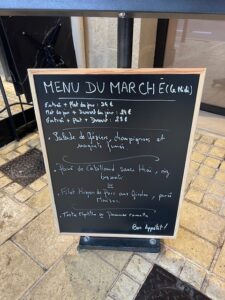 MENU DU MARCHÉ (Le Midi)
Entrée + Plat du jour : 24 €
Plat du jour + Dessert du jour : 24 €
Entrée + Plat + Dessert : 28 €
• Salade de Gésiers, champignons et
magrets fumés
• Pavé de Cabillaud sauce thaï, riz
basmati
ou
• Filet Mignon de Porc aux Girolles, purée
maison
• Tarte Myrtille
Bon Appétit !